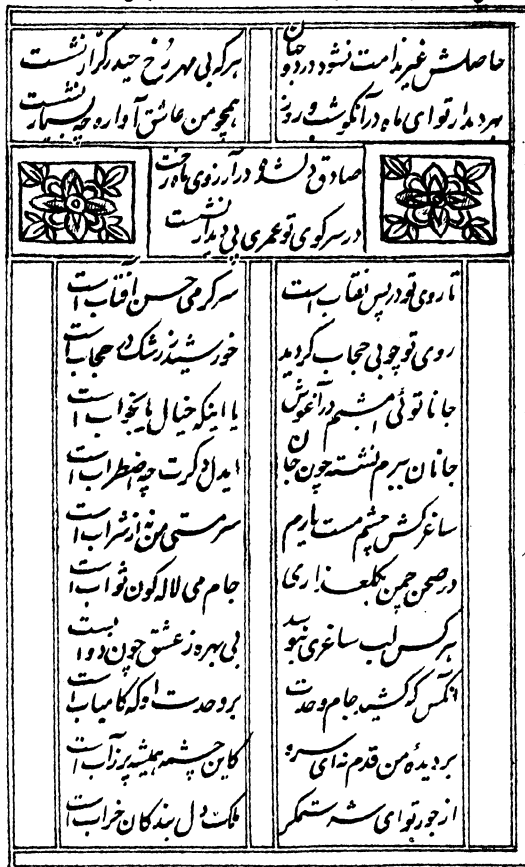 حاصلش غیر ندامت نشود در دو جهان هرکه بی مهر رخ حیدر کرار نشست
بهر دیدار تو ای ماه در آنکو شب و روز همچو من عاشق آواره چه بسیار نشست
صادق دلشده در آرزوی ماه رخت
در سر کوی تو عمری پی دیدار نشست
تا روی تو در پس نقاب است سرکرمی حسن آفتاب است
روی تو چو بی حجاب کردید خورشید ز رشک در حجاب است
جانا توئی امشبم در آغوش یا اینکه خیال یا بخواب است
جانان ببرم نشسته چون جان ایدل دکرت چه اضطراب است
ساغرکش چشم مست یارم سرمستی من نه از شراب است
در صحن چمن بکلعذاری جام می لاله کون ثواب است
هرکس لب ساغری نبوسید بی بهره ز عشق چون دواب است
آنکس که کشید جام وحدت بر وحدت او که کامیاب است
بر دیدهٔ من قدم نه ای سرو کاین چشمه همیشه پر ز آب است
از جور تو ای شه ستمکر ملک دل بندکان خراب است